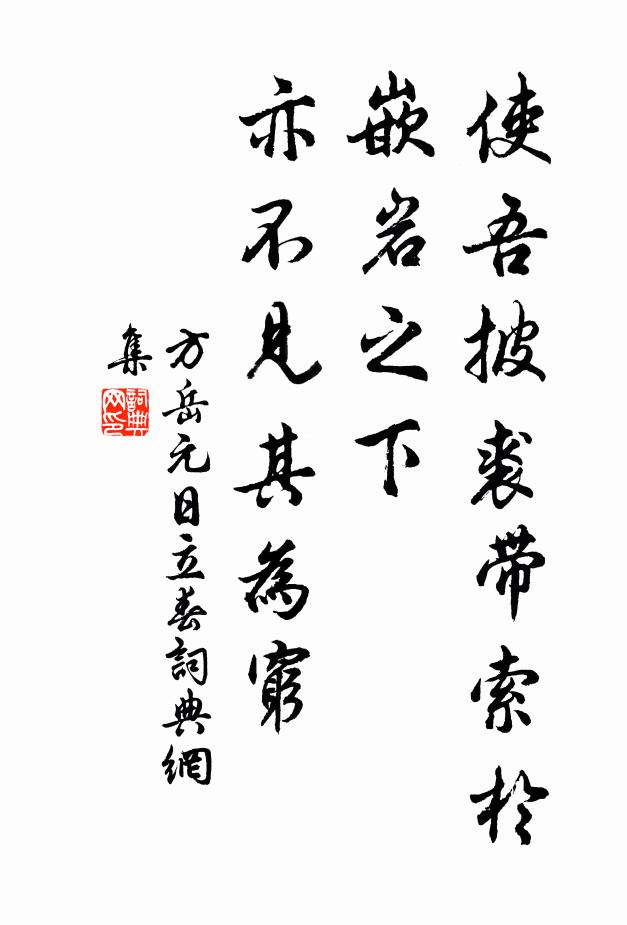 使吾披裘带索於
嵌岩之下
亦不见其為窮
方岳元日立春詞典網
集
詞典
网印